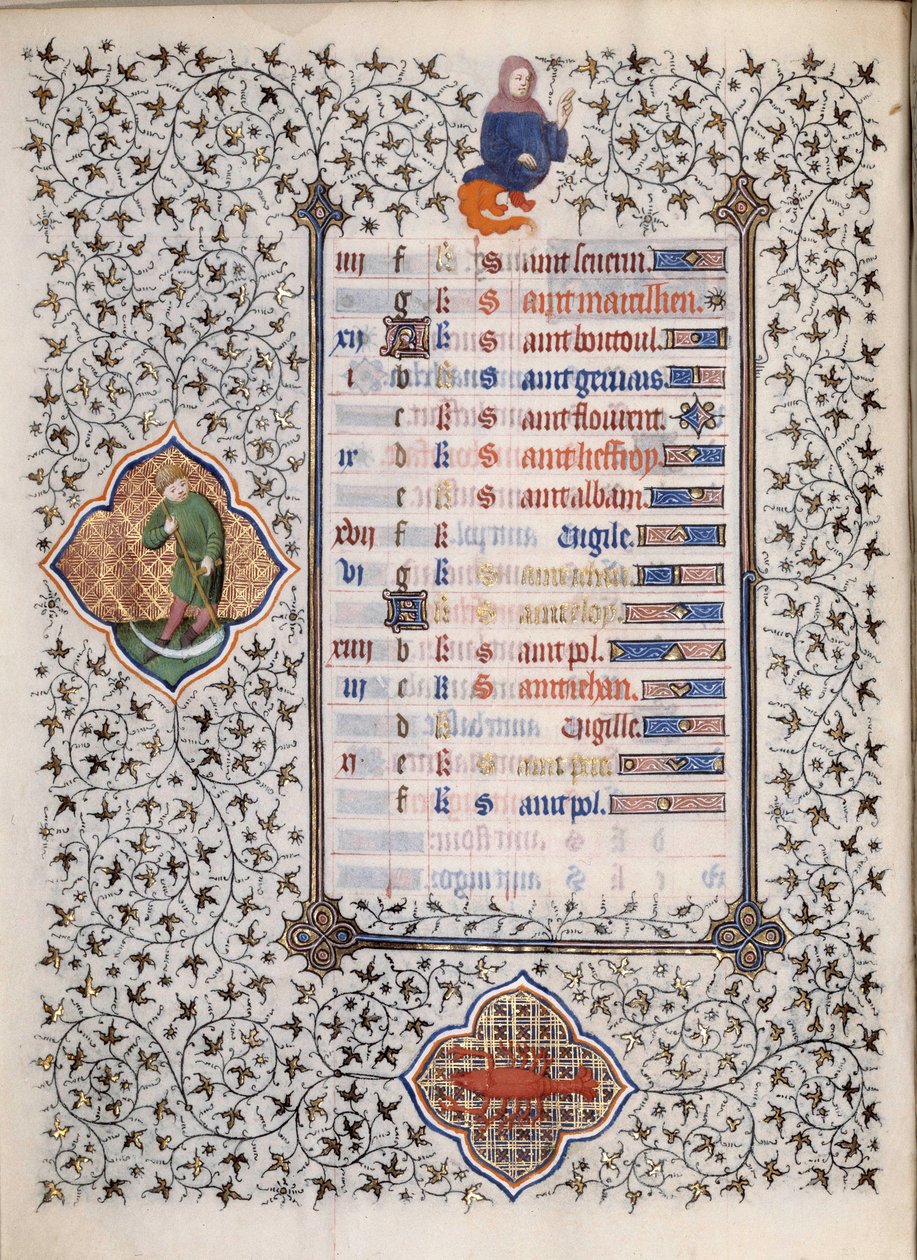 iiij f k S aint seuerin.
g k S aint marcilhen.
xij A k S aint boutoul.
i b k S aint geruais.
c k S aint flourent.
ix d k S aint lieffroy.
e k S aint albain.
xvij f k Vigile.
vi g k S aint
A k S aint eloy.
xiiij b k S aint pol.
iij c k S aint iehan.
d k Vigille.
xi e k S aint pierre
f k S aint pol.